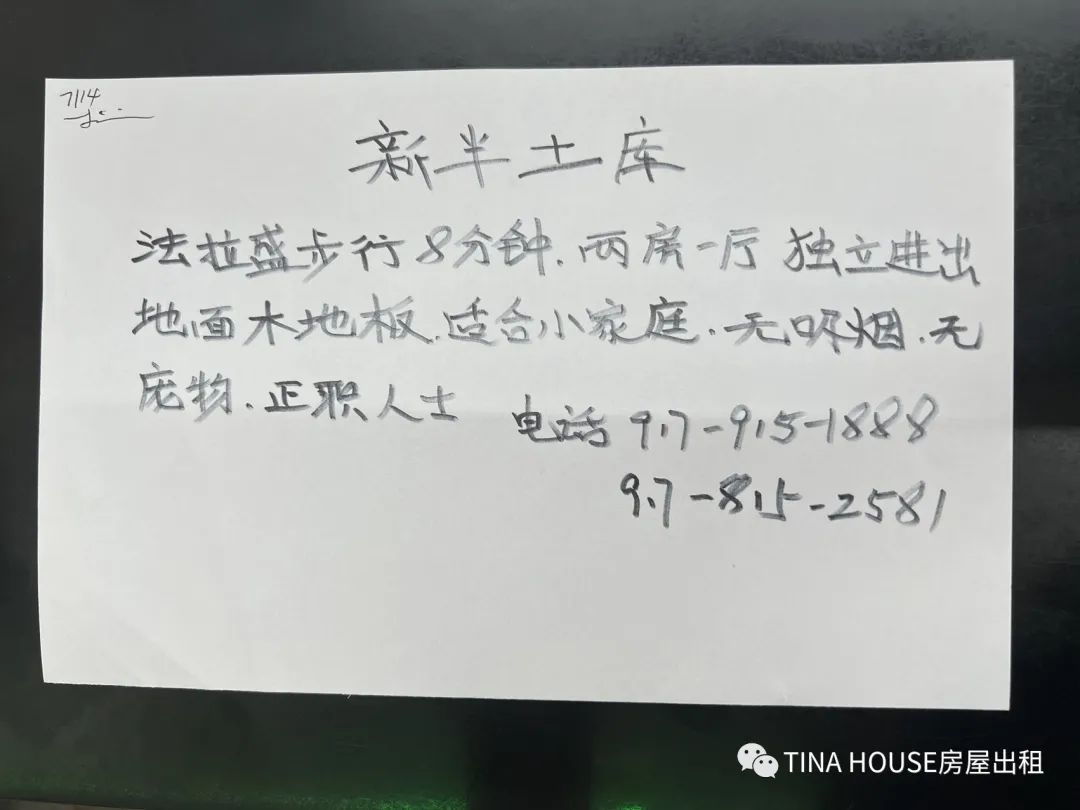 7/14
新半土库
法拉盛步行8分钟.两房一厅 独立进出
地面木地板.适合小家庭.无吸烟.无
宠物.正职人士
电话 917-915-1888
917-815-2581
TINA HOUSE房屋出租